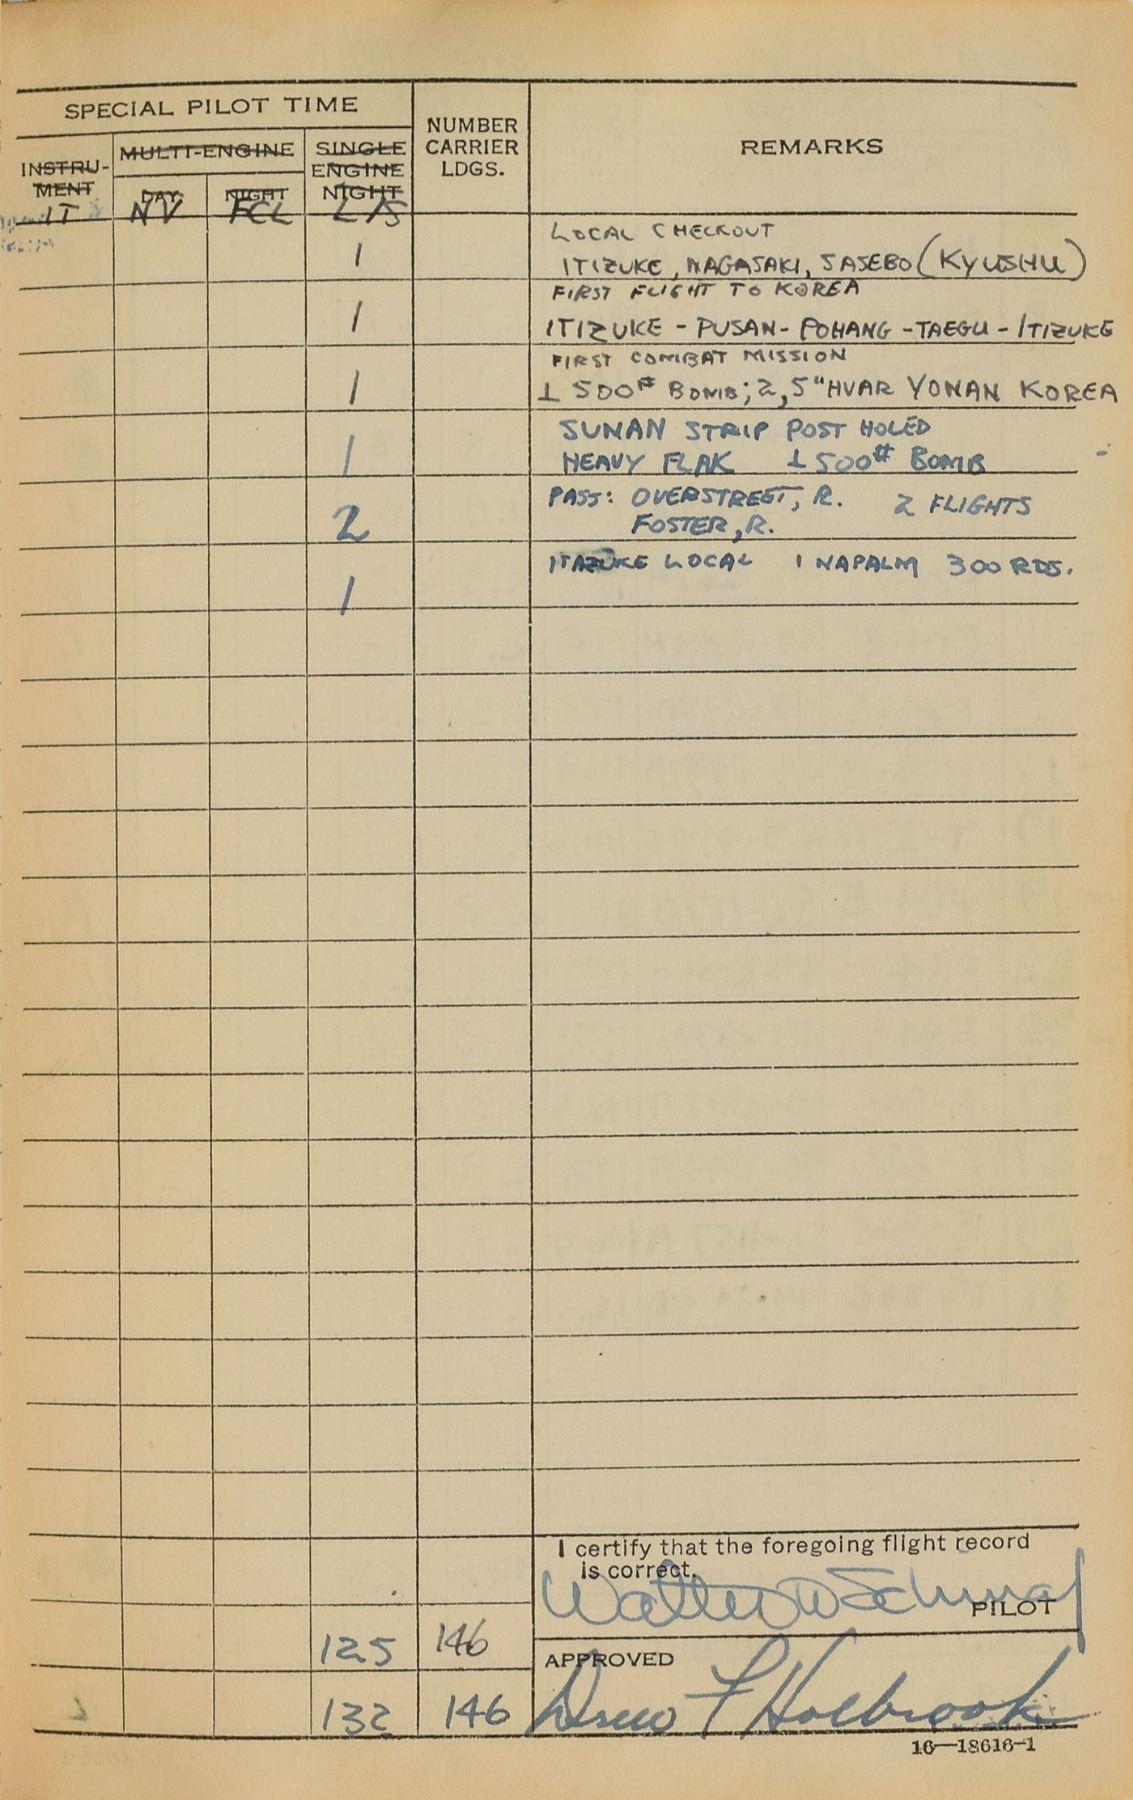 SPECIAL PILOT TIME
NUMBER CARRIER LDGS.
REMARKS
INSTRU-MENT
MULTI-ENGINE
SINGLE ENGINE NIGHT
DAY
NIGHT
IT
NV
FCL
L/S
LOCAL CHECKOUT
1
ITIZUKE, NAGASAKI, SASEBO (KYUSHU)
FIRST FLIGHT TO KOREA
1
ITIZUKE - PUSAN - POHANG - TAEGU - ITIZUKE
FIRST COMBAT MISSION
1
1 500# BOMB; 2, 5" HVAR YONAN KOREA
SUNAN STRIP POST HOLED
1
HEAVY FLAK 1 500# BOMB
PASS: OVERSTREET, R. 2 FLIGHTS
2
FOSTER, R.
ITAZUKE LOCAL 1 NAPALM 300 RDS.
1
I certify that the foregoing flight record is correct.
PILOT
125
146
APPROVED
132
146
Drew F Holbrook
16—18616-1